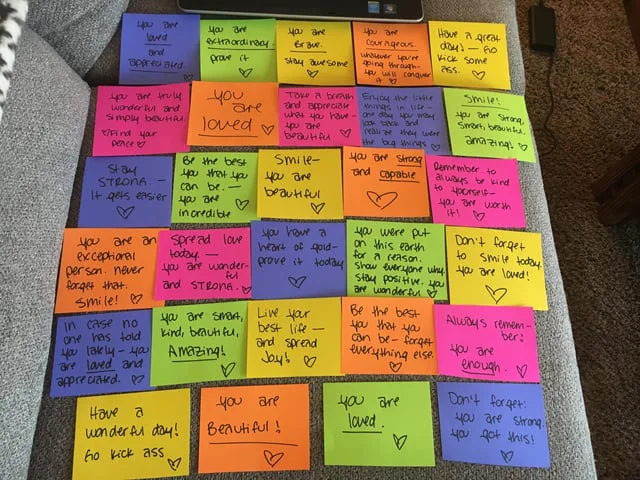 you are
loved
and
appreciated.
you are
extraordinary.
prove it
you are
Brave.
stay awesome
you are
courageous.
whatever you're
going through-
you will conquer
it
Have a great
day! - Go
kick some
ass.
you are truly
wonderful and
simply beautiful.
Find your
peace
you are
loved
Take a breath
and appreciate
what you have-
you are
beautiful
Enjoy the little
things in life-
one day you may
look back and
realize they were
the big things
Smile!
you are strong,
smart, beautiful.
amazing!
Stay
STRONG. -
It gets easier
Be the best
you that you
can be. -
you are
incredible
Smile-
you are
beautiful
you are strong
and capable
Remember to
always be kind
to yourself-
you are worth
it!
you are an
exceptional
person. never
forget that.
Smile!
Spread love
today. -
you are wonder-
ful
and STRONG.
you have a
heart of gold-
prove it today
you were put
on this earth
for a reason.
show everyone why.
stay positive. you
are wonderful.
Don't forget
to smile today.
you are loved!
In case no
one has told
you lately - you
are loved and
appreciated.
you are smart,
kind, beautiful,
Amazing!
Live your
best life -
and spread
Joy!
Be the best
you that you
can be - forget
everything else.
Always remem-
ber:
you are
enough.
Have a
wonderful day!
Go kick ass
you are
Beautiful!
you are
loved.
Don't forget:
you are strong.
you got this!